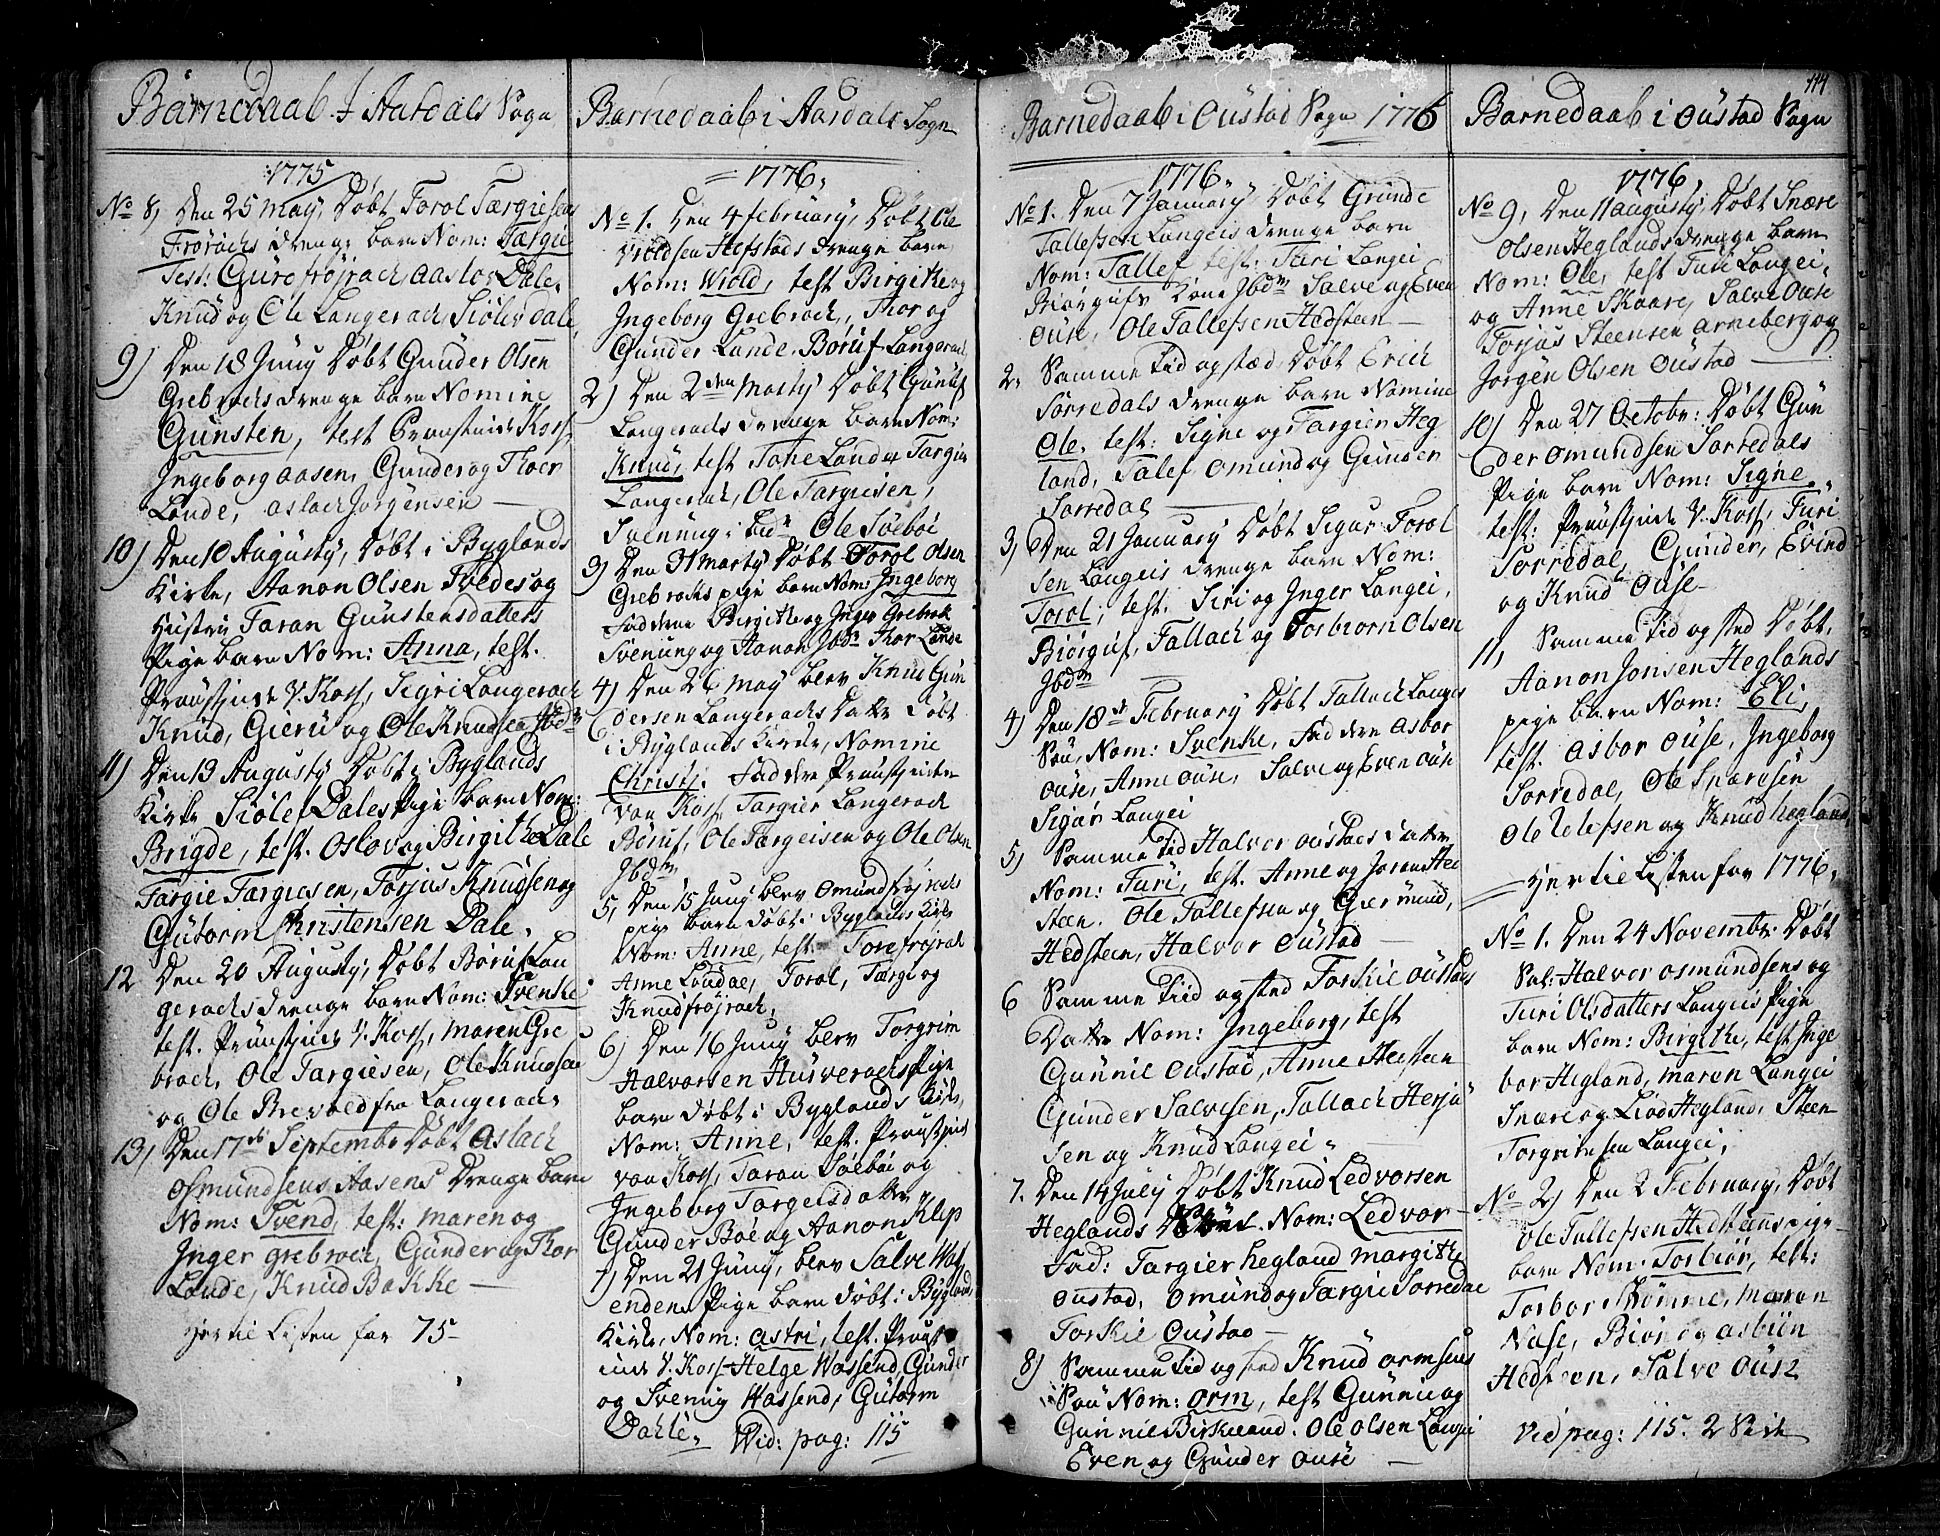 Barnedaab I Aardals Sogn
1775
No 8, Den 25 May, Døbt Torol Tærgiesens
Frørachs drenge barn Nom: Targie
Test: Guro frøjrach, Aaslog Dale,
Knud og Ole Langerach, Siølev dale,
9) Den 18 Juny Døbt Gunder Olsen
Grebrochs drenge barn Nomine
Gunsten, test Proustinde Koss,
Ingeborg Aasen, Gunder og Thoer
Londe, Aslach Jorgensen —
10) Den 10 Augusty, Døbt i Byglands
Kirke, Aanon Olsen Tvedes og
Hustru Taran Gunstensdatters
Pige barn Nom: Anna, test.
Proustinde v. Koss, Sigri Langerach
Knud, Gieru og Ole Knudsen Jbdm
11) Den 19 Augusty Døbt i Byglands
Kirke Siølef Dales Pige barn Nom:
Brigde, test. Oslov og Birgithe Dale
Targie Targiesen, Torjus Knudsen og
Gutorm Christensen Dale,
12 Den 20 Augusty, Døbt Boruf Lan
gerachs drenge barn Nom: Svenke
test. Proustinde v. Koss, Maren Gre
brock, Ole Targiesen, Ole Knudsen
og Ole Brevold fra Langerach,
13) Den 17de Septembr Døbt Aslach
Osmundsens Aasens Drenge barn
Nom: Svend, test: Maren og
Inger grebroch, Gunder og Thor
Londe, Knud Bakke —
her til Listen for 75 —

Barnedaab i Aardals Sogn
= 1776,
No 1. Den 4 february, Døbt Ole
Violdsen Hefstads drenge barn
Nom: Wiold, test Birgithe og
Ingeborg Grebroch, Thor og
Gunder Lunde, Boruf Langerach,
2) Den 2den Marty Døbt Gunuf
Langerachs drenge barn Nom:
Knud, test Tone Londe Targie
Langerach, Ole Targiesen,
Svenung ibdm Ole Søebøe
3) Den 31 Marty Døbt Torol Olsen
Grebrochs pige barn Nom: Ingeborg
Faddere Birgithe og Inger Grebrok
Svenung og Aanon Jbdm Thor Lunde
4) Den 26 May blev Knud Gun
dersen Langerachs Datter Døbt
i Byglands Kirke, Nomine
Christi. Faddere Proustinden
von Koss, Targier Langerach
Boruf, Ole Targeisen og Ole Olsen
Jbdm
5, Den 15 Juny blev Omund frøjrachs
pige barn døbt i Byglands Kirke
Nom: Anne, test: Tore frøjrach
Anne Londal, Torol, Targe og
Knud frøjrach,
6) Den 16 Juny blev Torgrim
Halvorsen Husverachs Pige
barn døbt i Byglands Kirke,
Nom: Anne, test. Proustinde
von Koss, Taran Søebøe og
Ingeborg Targelsdatter,
Gunder Bøe og Aanon Klep
7) Den 21 Juny, blev Salve Was
enden Pige barn døbt i Byglands
Kirke, Nom: Astri, test. Proust
inde v. Koss Helge Wassend Gunder
og Svenug Wassend, Gutorm
Dahle, Vid: pag: 115

Barnedaab i Oustad Sogn 1776
1776
No 1. Den 7 January Døbt Grunde
Tallefsen Langeis drenge barn
Nom: Tallef test: Turi Langei
Biørgufs Kone Jbdm Salve og Even
Ouse, Ole Tallefsen Hedsteen —
2, Samme tid og stæd Døbt Erich
Sorredals drenge barn Nomine
Ole, test: Signe og Targier Heg
land, Talef Omund og Gunder
Sorredal —
3) Den 21 January Døbt Sigur Torol
sen Langeis drenge barn Nom:
Torol, test: Siri og Inger Langei,
Biørguf, Tallach og Torbiorn Olsen
Jbdm —
4) Den 18de February Døbt Tallach Langeis
Søn, Nom: Svenke, Faddere Asbor
Ouse, Anne Ouse, Salve og Even Ouse
Sigur Langei
5) Samme tid Halvor Oustads datter
Nom: Turi, test. Anne og Joran Hed
steen. Ole Tallefsen og Giermund,
Hedsteen, Halvor Oustad —
6 Samme tiid og sted Torkie Oustads
Datter Nom: Ingeborg, test
Gunnil Oustad, Anne Hedsteen
Gunder Salvesen, Tallach Herju
sen og Knud Langei. —
7. Den 14 July Døbt Knud Ledvorsen
Heglands Nom: Ledvor —
Fad: Targier hegland Margithe
Oustad, Omund og Targie Sorredal
Torkie Oustad —
8) Samme tid og sted Knud Ormsens
Søn Nom: Orm, test Gunnil og
Gunnil Birkeland. Ole Olsen Langei
Even og Gunder Ouse —

114
Barnedaab i Oustad Sogn
1776,
No 9, Den 11 Augusty, Døbt Snære
Olsen Heglands drenge barn
Nom: Ole, test Turi Langei,
og Anne Skaare, Salve Ouse
Torjus Steensen Arneberg og
Jorgen Olsen Oustad —
10) Den 27 Octobr: Døbt Gun
der Omundsen Sorredals
Pige barn Nom: Signe,
test: Proustinde v. Koss, Turi
Sorredal, Gunder, Evind
og Knud Ouse —
11, Samme tid og sted Døbt,
Aanon Jonsen Heglands
pige barn Nom: Eli,
test. Asbor Ouse, Ingeborg
Sorredal, Ole Snaresen
Ole Tellefsen og Knud hegland
— her til Listen for 1776,
No 1. Den 24 Novembr: Døbt
Sal: Halvor Osmundsens og
Turi Olsdatters Langeis Pige
barn Nom: Birgithe, test Inge
bor Hegland, Maren Langei
Snære og Liod Hegland, Steen
Torgrimsen Langei,
No 2) Den 2 February, Døbt
Ole Tallefsen Hedsteens pige
barn Nom: Torbiør, test:
Torbor Homme, Maren
Nase, Biørn og Asbiøn
Hedsteen, Salve Ouse
Vid pag: 115. 2 Side